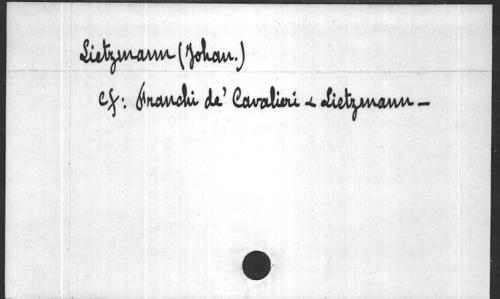 Lietzmann (Johan.)
cf: Franchi de' Cavalieri & Lietzmann –